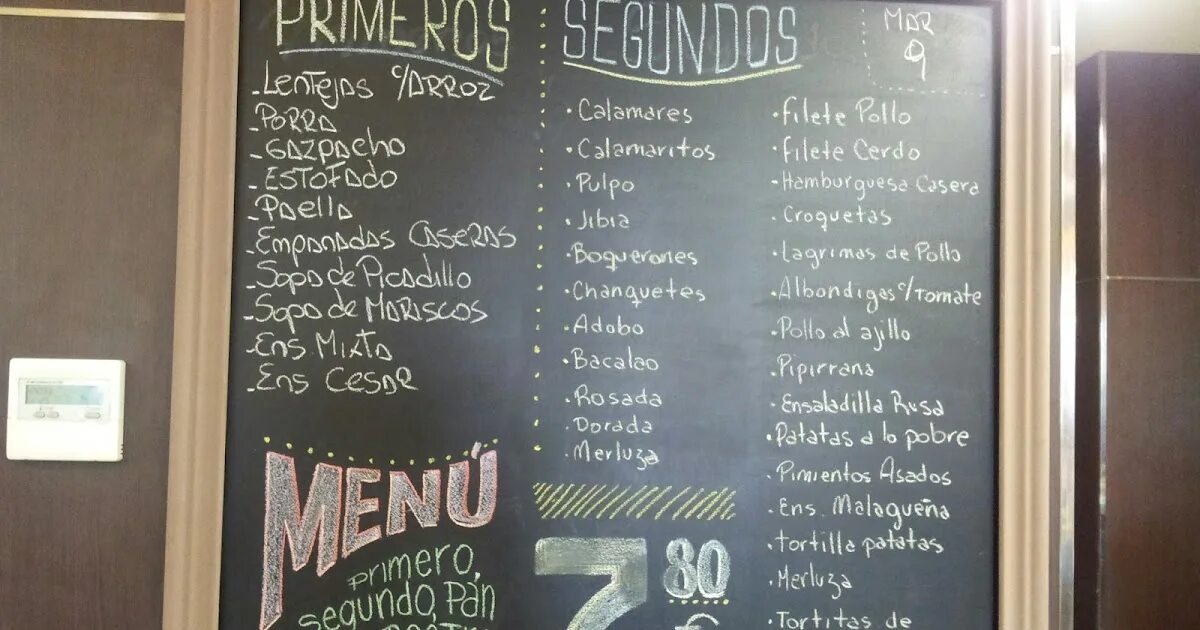 PRIMEROS
-LENTEJAS C/ARROZ
-PORRA
-GAZPACHO
-ESTOFADO
-Paella
-Empanadas CASERAS
-Sopa de Picadillo
-Sopa de MARISCOS
-Ens Mixta
-Ens CESAR
MENÚ
primero,
segundo, Pan
SEGUNDOS
MAR
9
•Calamares
•Calamaritos
•Pulpo
•Jibia
•Boquerones
•Chanquetes
•Adobo
•Bacalao
•Rosada
•Dorada
•Merluza
7 80
€
•Filete Pollo
•Filete Cerdo
•Hamburguesa Casera
•Croquetas
•Lagrimas de Pollo
•Albondigas c/Tomate
•Pollo al ajillo
•Pipirrana
•Ensaladilla Rusa
•Patatas a lo pobre
•Pimientos Asados
•Ens. Malagueña
•Tortilla patatas
•Merluza
•Tortitas de